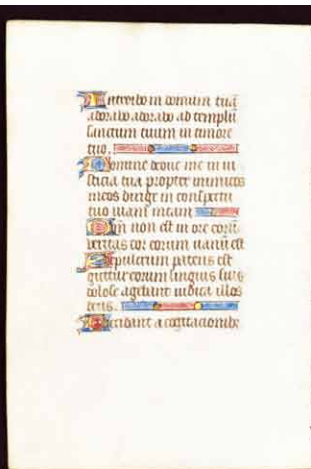 Introibo in domum tuã
adorabo adorabo ad templũ
sanctum tuum in timore
tuo.
Domine deduc me in iu
sticia tua propter inimicos
meos dirige in conspectu
tuo viam meam
Qm̃ non est in ore eorũ
veritas cor eorum vanũ est
Sepulcrum patens est
guttur eorum linguis suis
dolose agebant iudica illos
deus.
Decidant a cogitacionibs